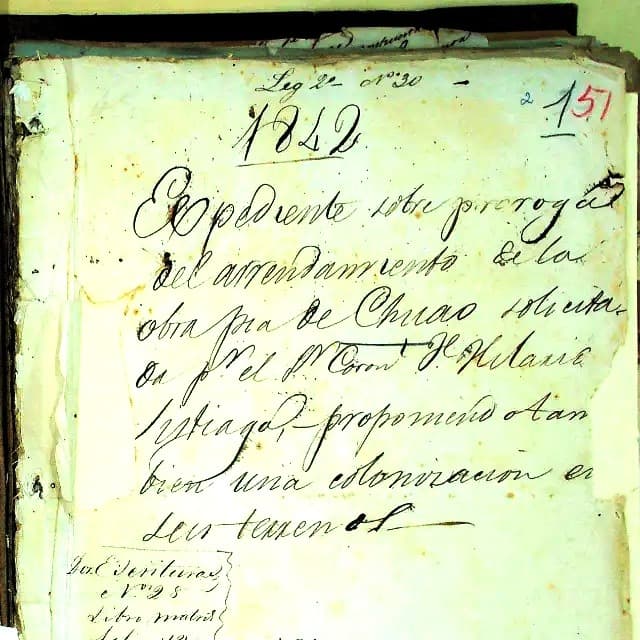 Leg 2º Nº 30
2 1 51
1842
Expediente sobre proroga
del arrendamiento de la
obra pia de Chuao solicita-
da pr. el Sr. Coronl. Jé. Hilario
Sistiaga, proponiendo tam
bien una colonizacion en
sus terrenos
Escrituras
Nº 28
Libro